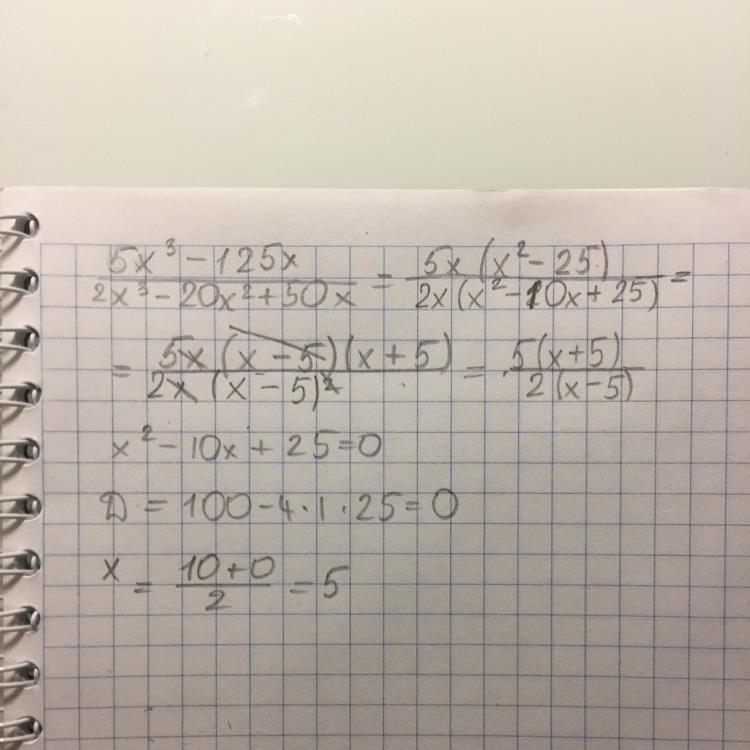 5x³ - 125x / 2x³ - 20x² + 50x = 5x (x² - 25) / 2x (x² - 10x + 25) =
= 5x (x - 5)(x + 5) / 2x (x - 5)² = 5(x + 5) / 2(x - 5)
x² - 10x + 25 = 0
D = 100 - 4 · 1 · 25 = 0
x = 10 + 0 / 2 = 5